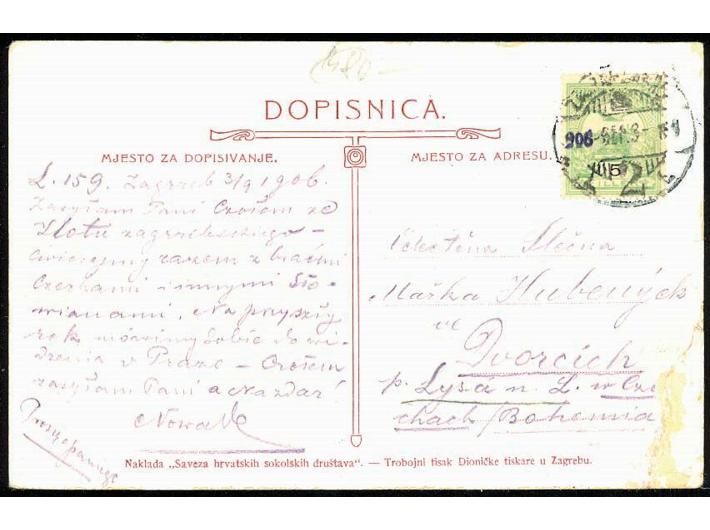 1480 -
DOPISNICA.
MJESTO ZA DOPISIVANJE.
L. 159. Zagrzeb 3/9 1906.
Zasyłam Pani Czołem ze
Zlotu zagrzebskiego -
Ćwiczymy razem z braćmi
Czechami i innymi Sło-
wianami. Na przyszły
rok mówimy sobie do wi-
dzenia v Praze - Czołem
zasyłam Pani a Na zdar!
Nowak
MJESTO ZA ADRESU.
906 SEP. 3
5
2
Slečna
Mařka Hubených
ve
Dvorcích
p. Lysá n. L. w Cze
chach / Bohemia
Naklada „Saveza hrvatskih sokolskih društava“. — Trobojni tisak Dioničke tiskare u Zagrebu.